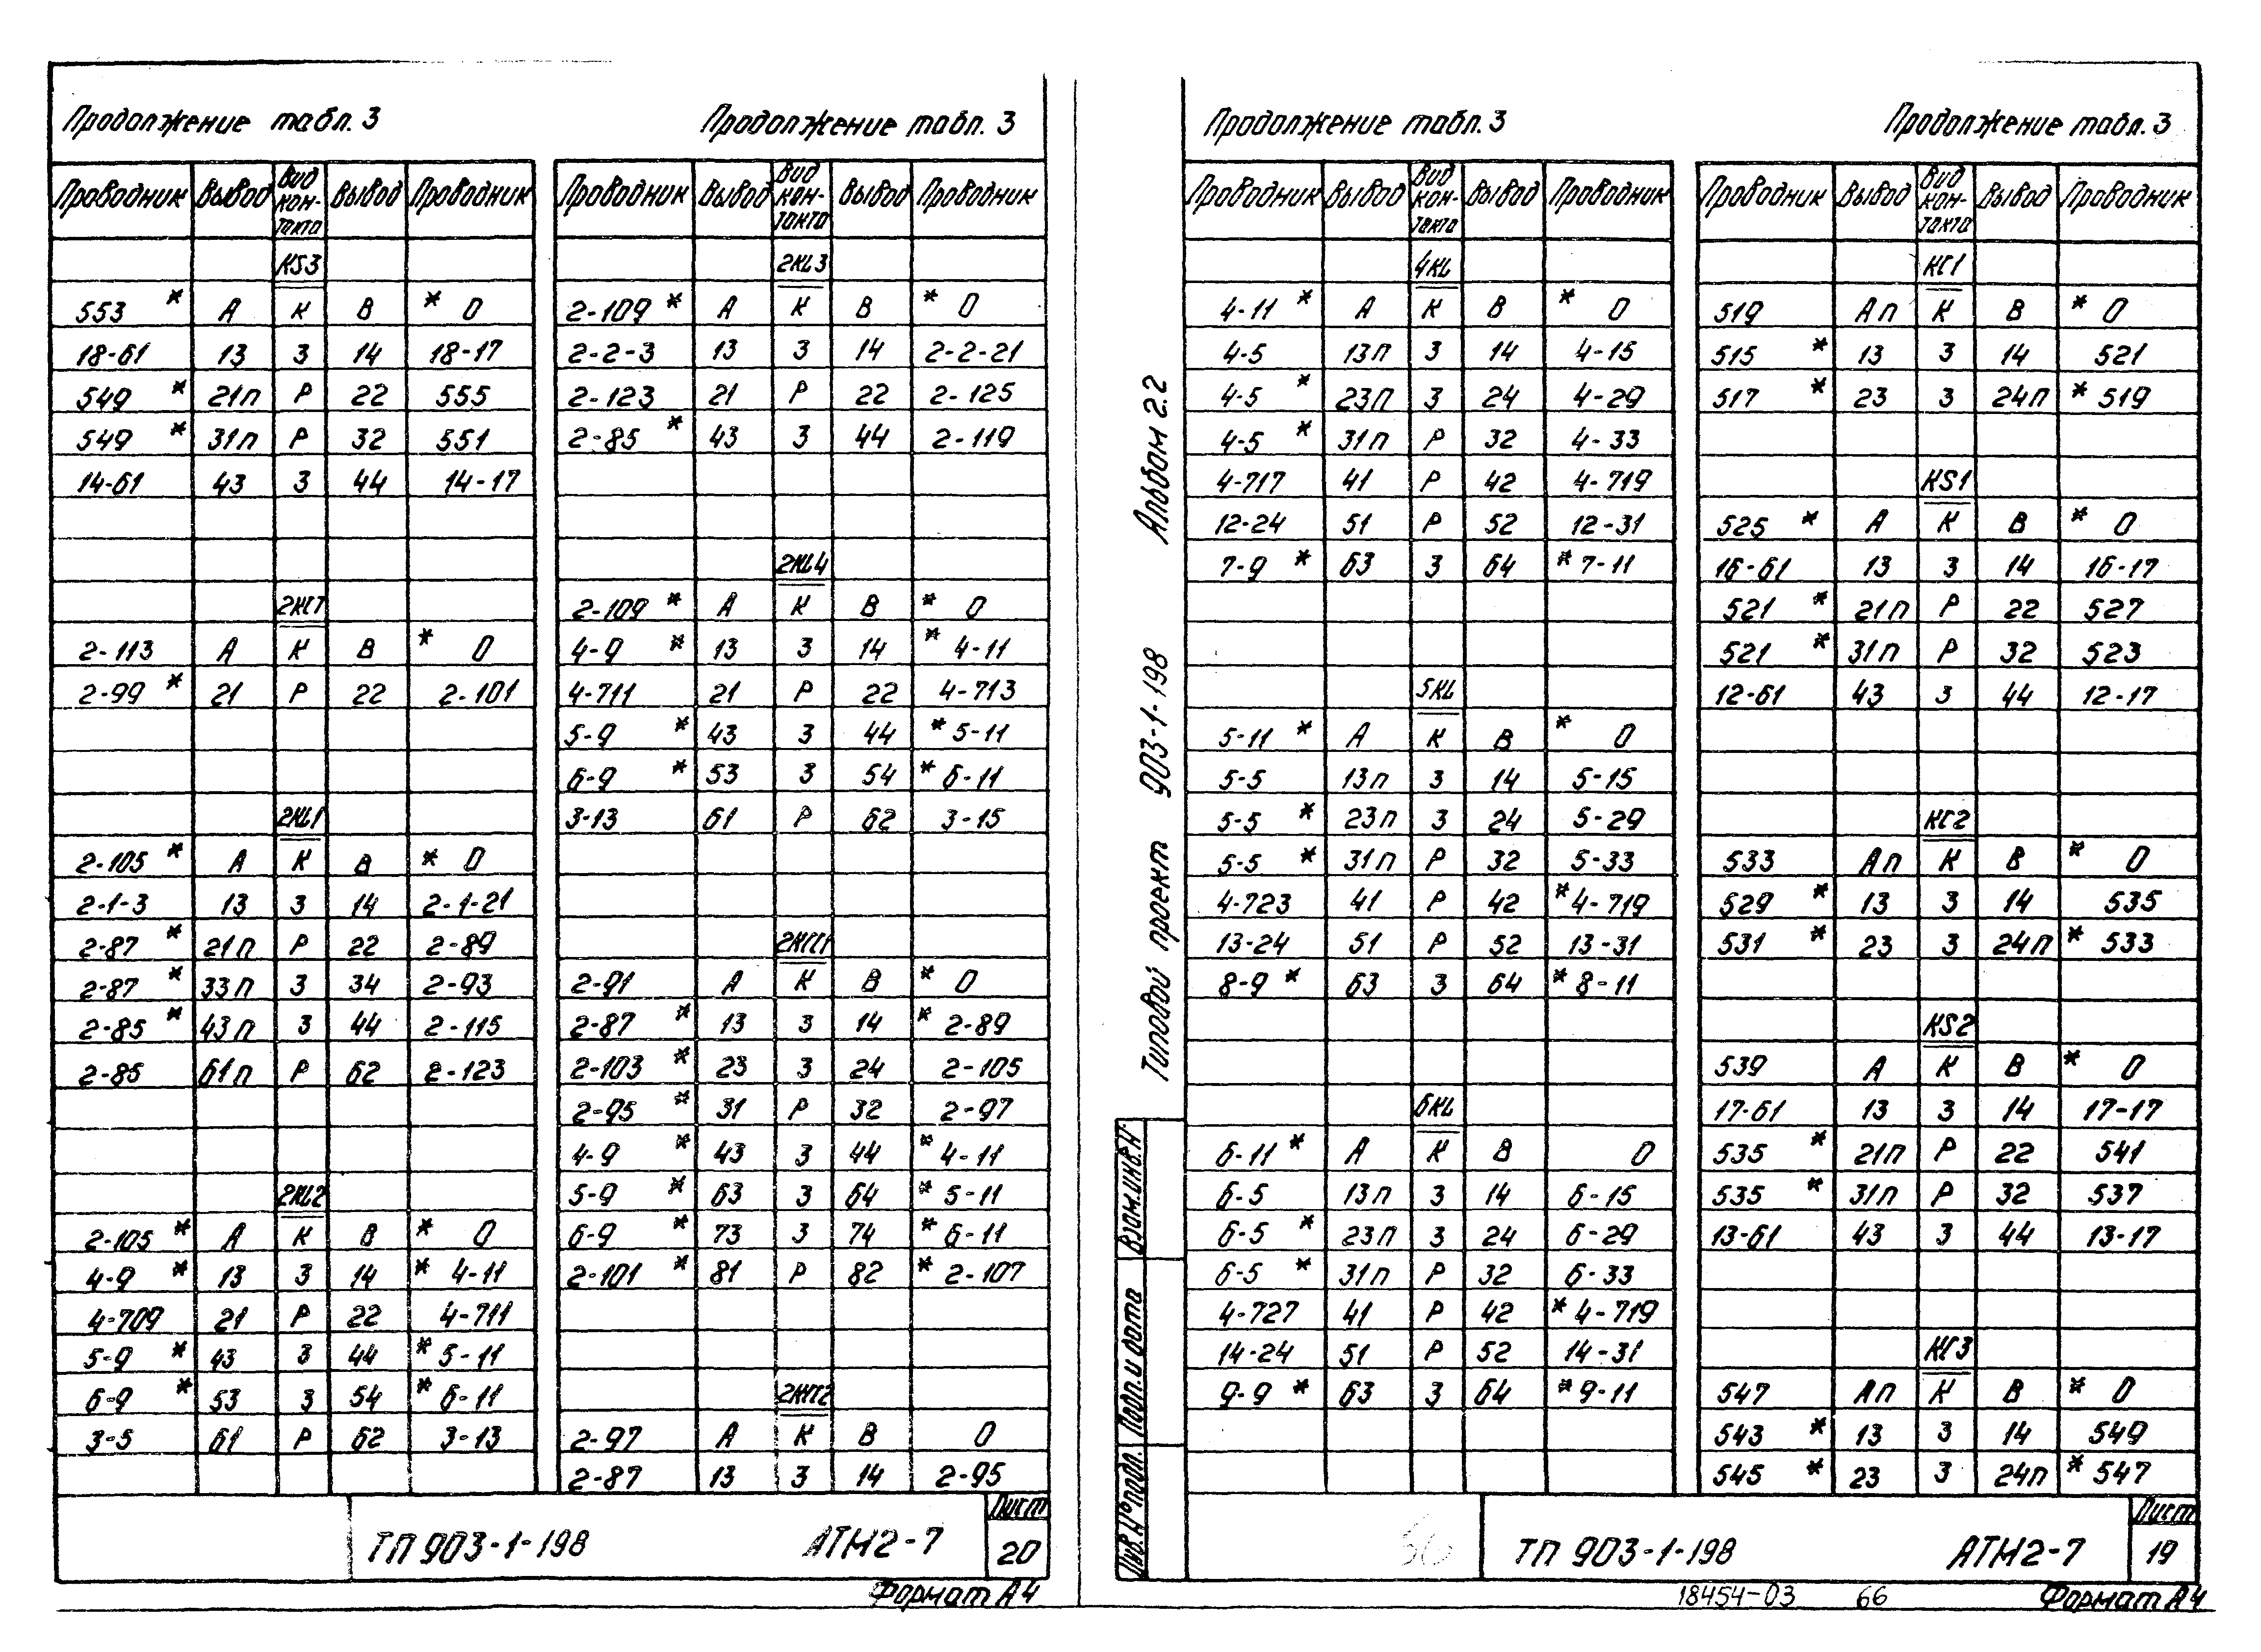 Продолжение табл. 3
Проводник Вывод Вид кон- такта Вывод Проводник
KS3
553 * А К В * 0
18-61 13 З 14 18-17
549 * 21п Р 22 555
549 * 31п Р 32 551
14-61 43 З 44 14-17
2КСТ
2-113 А К В * 0
2-99 * 21 Р 22 2-101
2KL1
2-105 * А К В * 0
2-1-3 13 З 14 2-1-21
2-87 * 21п Р 22 2-89
2-87 * 33п З 34 2-93
2-85 * 43п З 44 2-115
2-85 61п Р 62 2-123
2KL2
2-105 * А К В * 0
4-9 * 13 З 14 * 4-11
4-709 21 Р 22 4-711
5-9 * 43 З 44 * 5-11
6-9 * 53 З 54 * 6-11
3-5 61 Р 62 3-13
Продолжение табл. 3
Проводник Вывод Вид кон- такта Вывод Проводник
2KL3
2-109 * А К В * 0
2-2-3 13 З 14 2-2-21
2-123 21 Р 22 2-125
2-85 * 43 З 44 2-119
2KL4
2-109 * А К В * 0
4-9 * 13 З 14 * 4-11
4-711 21 Р 22 4-713
5-9 * 43 З 44 * 5-11
6-9 * 53 З 54 * 6-11
3-13 61 Р 62 3-15
2КСС1
2-91 А К В * 0
2-87 * 13 З 14 * 2-89
2-103 * 23 З 24 2-105
2-95 * 31 Р 32 2-97
4-9 * 43 З 44 * 4-11
5-9 * 63 З 64 * 5-11
6-9 * 73 З 74 * 6-11
2-101 * 81 Р 82 * 2-107
2-97 А К В 0
2-87 13 З 14 2-95
ТП 903-1-198 АТМ2-7 Лист 20
Формат А4
Альбом 2.2
Типовой проект 903-1-198
Взам.инв.№
Подп. и дата
Инв.№ подл.
Продолжение табл. 3
Проводник Вывод Вид кон- такта Вывод Проводник
4KL
4-11 * А К В * 0
4-5 13п З 14 4-15
4-5 * 23п З 24 4-29
4-5 * 31п Р 32 4-33
4-717 41 Р 42 4-719
12-24 51 Р 52 12-31
7-9 * 63 З 64 * 7-11
5KL
5-11 * А К В * 0
5-5 13п З 14 5-15
5-5 * 23п З 24 5-29
5-5 * 31п Р 32 5-33
4-723 41 Р 42 * 4-719
13-24 51 Р 52 13-31
8-9 * 63 З 64 * 8-11
6KL
6-11 * А К В 0
6-5 13п З 14 6-15
6-5 * 23п З 24 6-29
6-5 * 31п Р 32 6-33
4-727 41 Р 42 * 4-719
14-24 51 Р 52 14-31
9-9 * 63 З 64 * 9-11
Продолжение табл. 3
Проводник Вывод Вид кон- такта Вывод Проводник
КС1
519 Ап К В * 0
515 * 13 З 14 521
517 * 23 З 24п * 519
KS1
525 * А К В * 0
16-61 13 З 14 16-17
521 * 21п Р 22 527
521 * 31п Р 32 523
12-61 43 З 44 12-17
КС2
533 Ап К В * 0
529 * 13 З 14 535
531 * 23 З 24п * 533
KS2
539 А К В * 0
17-61 13 З 14 17-17
535 * 21п Р 22 541
535 * 31п Р 32 537
13-61 43 З 44 13-17
КС3
547 Ап К В * 0
543 * 13 З 14 549
545 * 23 З 24п * 547
ТП 903-1-198 АТМ2-7 Лист 19
18454-03 66 Формат А4